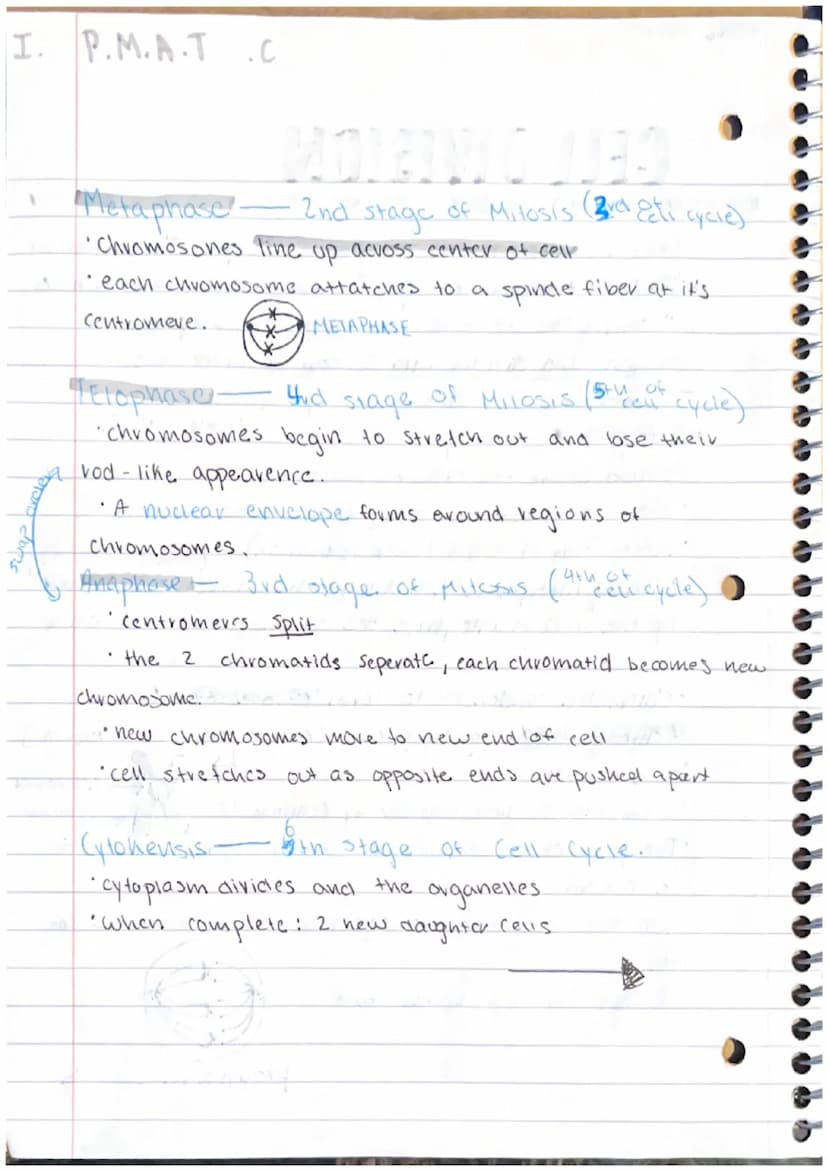 I. P.M.A.T .C
CELL DIVISION
Metaphase — 2nd stage of Mitosis (3rd of cell cycle)
• Chromosones line up across center of cell
• each chromosome attatches to a spindle fiber at it's
centromere.
METAPHASE
Telophase — 4rd stage of Mitosis (5th of cell cycle)
• chromosomes begin to stretch out and lose their
rod-like appearence.
• A nuclear envelope forms around regions of
chromosomes.
swap orders
Anaphase — 3rd stage of Mitosis (4th of cell cycle)
• centromers split
• the 2 chromatids seperate, each chromatid becomes new
chromosome.
• new chromosomes move to new end of cell
• cell stretches out as opposite ends are pushed apart
Cytokensis — 6th stage of Cell Cycle.
• cytoplasm divides and the organelles
• When complete: 2 new daughter cells